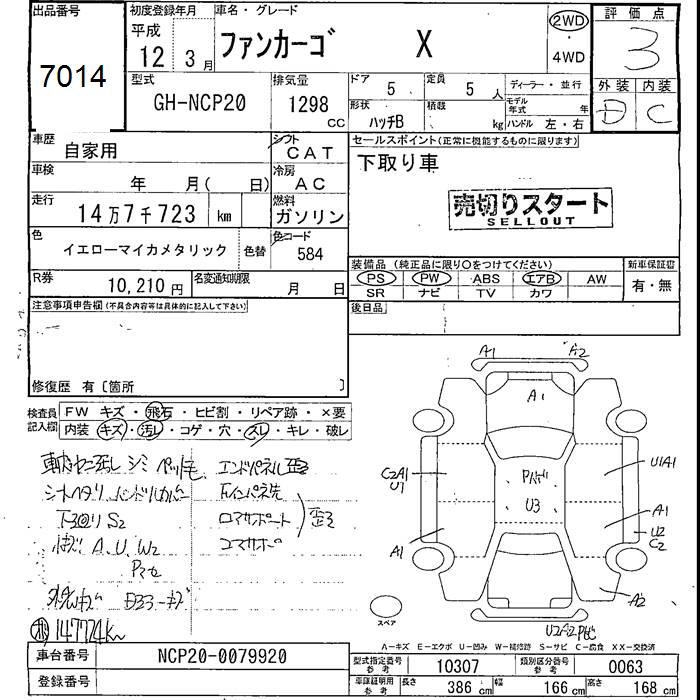 出品番号
7014
初度登録年月
平成
12 3月
車名・グレード
ファンカーゴ X
2WD
・
4WD
評価点
3
外装 内装
D C
型式
GH-NCP20
排気量
1298 CC
ドア 5
定員 5 人
ディーラー・並行
形状 ハッチB
積載 kg
モデル年式 年
ハンドル 左・右
車歴 自家用
シフト CAT
車検 年 月( 日)
冷房 AC
走行 14万7千723 km
燃料 ガソリン
色 イエローマイカメタリック 色替
色コード 584
R券 10,210円
名変通知期限 月 日
セールスポイント(正常に機能するものに限ります)
下取り車
売切りスタート
SELLOUT
装備品(純正品に限り○をつけてください)
新車保証書
PS PW ABS エアB AW
SR ナビ TV カワ
有・無
後日品
注意事項申告欄(不具合内容等は具体的に記入して下さい)
修復歴 有〔箇所 〕
検査員記入欄
FW キズ・飛石・ヒビ割・リペア跡・×要
内装 キズ・汚レ・コゲ・穴・スレ・キレ・破レ
シミ ペット毛 エンドパネル歪
ハンドルカバー
下回り S2
A. U. W2
147724km
A1 A2
A1
C2A1
U1
U3
U1A1
A1
U2
C2
A1
A2
スペア
A-キズ E-エクボ U-凹み W-補修跡 S-サビ C-腐食 XX-交換済
車台番号 NCP20-0079920
登録番号
型式指定番号 参考 10307
類別区分番号 参考 0063
車庫証明用 参考 長さ 386 cm 幅 166 cm 高さ 168 cm